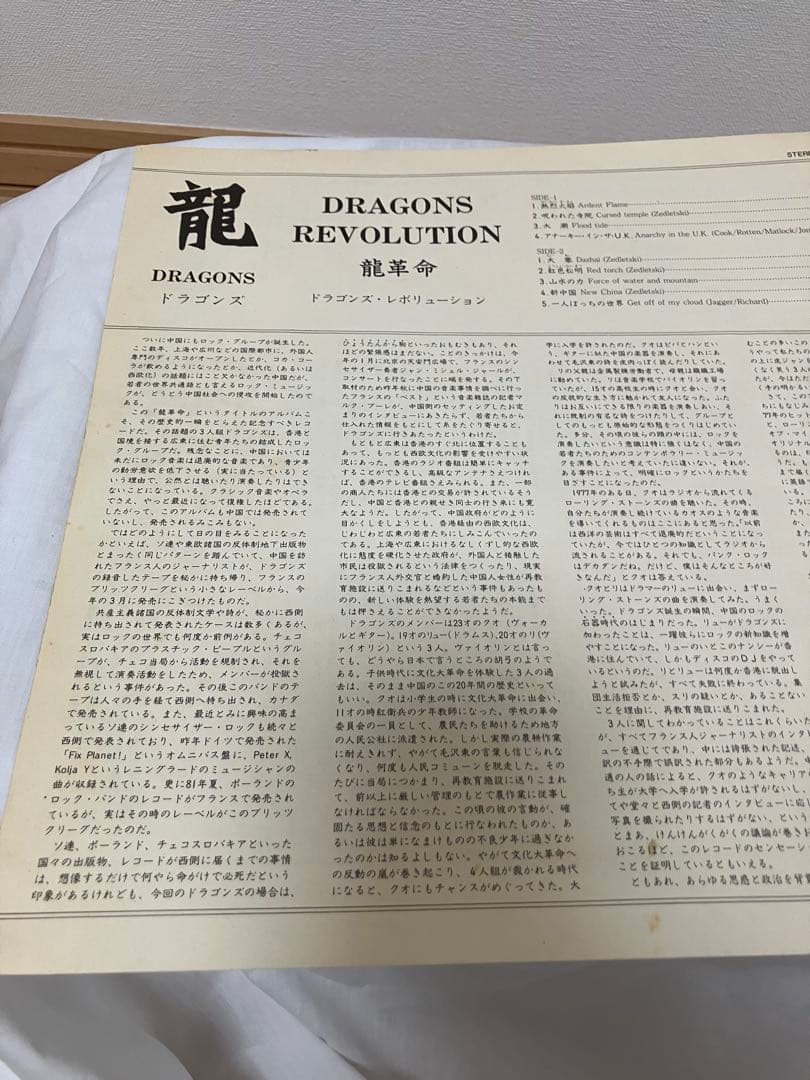 STERE
龍
DRAGONS
ドラゴンズ
DRAGONS
REVOLUTION
龍革命
ドラゴンズ・レボリューション
SIDE-1
1.熱烈火焰 Ardent Flame
2.呪われた寺院 Cursed temple (Zedletski)
3.大 潮 Flood tide
4.アナーキー・イン・ザ・U.K. Anarchy in the U.K. (Cook/Rotten/Matlock/Jon
SIDE-2
1.大 寨 Dazhai (Zedletski)
2.紅色松明 Red torch (Zedletski)
3.山水の力 Force of water and mountain
4.新中国 New China (Zedletski)
5.一人ぼっちの世界 Get off of my cloud (Jagger/Richard)
ついに中国にもロック・グループが誕生した。
ここ数年、上海や広州などの国際都市に、外国人
専門のディスコがオープンしたとか、コカ・コー
ラが飲めるようになったとか、近代化(あるいは
西欧化)の話題にはこと欠かなかった中国だが、
若者の世界共通語とも言えるロック・ミュージッ
クが、とうとう中国社会への侵攻を開始したので
ある。
この「龍革命」というタイトルのアルバムこ
そ、その歴史的一瞬をとらえた記念すべきレコ
ードだ。その話題の3人組ドラゴンズは、香港と
国境を接する広東に住む青年たちの結成したロッ
ク・グループだ。残念なことに、中国においては
未だにロック音楽は退廃的な音楽であり、青少年
の勤労意欲を低下させる(実に当たっている)と
いう理由で、公然とは聴いたり演奏したりはでき
ないことになっている。クラシック音楽やオペラ
でさえ、やっと最近になって復権したほどである。
したがって、このアルバムも中国では発売されて
いないし、発売されるみこみもない。
ではどのようにして日の目をみることになった
かといえば、ソ連や東欧諸国の反体制地下出版物
とまったく同じパターンを踏んでいて、中国を訪
れたフランス人のジャーナリストが、ドラゴンズ
の録音したテープを秘かに持ち帰り、フランスの
ブリッツクリーグという小さなレーベルから、今
年の3月に発売にこぎつけたものだ。
共産主義諸国の反体制文学や詩が、秘かに西側
に持ち出されて発表されたケースは数多くあるが、
実はロックの世界でも何度か前例がある。チェコ
スロバキアのプラスチック・ピープルというグル
ープが、チェコ当局から活動を規制され、それを
無視して演奏活動をしたため、メンバーが投獄さ
れるという事件があった。その後このバンドのテ
ープは人々の手を経て西側へ持ち出され、カナダ
で発売されている。また、最近とみに興味の高ま
っているソ連のシンセサイザー・ロックも続々と
西側で発表されており、昨年ドイツで発売された
「Fix Planet!」というオムニバス盤に、Peter X,
Kolja Yというレニングラードのミュージシャンの
曲が収録されている。更に81年夏、ポーランドの
ロック・バンドのレコードがフランスで発売され
ているが、実はその時のレーベルがこのブリッツ
クリーグだったのだ。
ソ連、ポーランド、チェコスロバキアといった
国々の出版物、レコードが西側に届くまでの事情
は、想像するだけで何やら命がけで必死だという
印象があるけれども、今回のドラゴンズの場合は、
ひょうたんから駒といったおもむきもあり、それ
ほどの緊張感はまだない。ことのきっかけは、今
年の1月に北京の天安門広場で、フランスのシン
セサイザー奏者ジャン・ミシェル・ジャールが、
コンサートを行なったことに端を発する。その下
取材のため昨年秋に中国の音楽事情を調べに行っ
たフランスの「ベスト」という音楽雑誌の記者マ
ルク・ブーレが、中国側のセッティングしたお定
まりのインタビューにあきたらず、若者たちから
仕入れた情報をもとにして糸をたぐり寄せると、
ドラゴンズに行きあたったというわけだ。
もともと広東は香港のすぐ北に位置することも
あって、もっとも西欧文化の影響を受けやすい状
況にあった。香港のラジオ番組は簡単にキャッチ
することができるし、高級なアンテナさえつけれ
ば、香港のテレビ番組さえみられる。また、一部
の商人たちには香港との交易が許されているそう
だし、中国と香港との親せき同士の行き来にも寛
大なようだ。したがって、中国政府がどのように
目かくしをしようとも、香港経由の西欧文化は、
じわじわと広東の若者たちにしみこんでいったの
である。上海や広東におけるなしくずし的な西欧
化に態度を硬化させた政府が、外国人と接触した
市民は投獄されるという法律をつくったり、現実
にフランス人外交官と婚約した中国人女性が再教
育施設に送りこまれるなどという事件もあったも
のの、新しい体験を熱望する若者たちの本能まで
もは押さえることができなかったようだ。
ドラゴンズのメンバーは23才のクオ(ヴォーカ
ルとギター)。19才のリュー(ドラムス)、20才のリ(ヴ
ァイオリン)という3人。ヴァイオリンとは言っ
ても、どうやら日本で言うところの胡弓のようで
ある。子供時代に文化大革命を体験した3人の過
去は、そのまま中国のこの20年間の歴史といって
もいい。クオは小学生の時に文化大革命に出会い、
11才の時紅衛兵の少年教師になった。学校の革命
委員会の一員として、農民たちを助けるため地方
の人民公社に派遣された。しかし実際の農耕作業
に耐えきれず、やがて毛沢東の言葉も信じられな
くなり、何度も人民コミューンを脱走した。その
たびに当局につかまり、再教育施設に送りこまれ
て、前以上に厳しい管理のもとで農作業に従事し
なければならなかった。この頃の彼の言動が、確
固たる思想と信念のもとに行なわれたものか、あ
るいは彼は単になまけものの不良少年に過ぎなか
ったのかは知るよしもない。やがて文化大革命へ
の反動の嵐が巻き起こり、4人組が裁かれる時代
になると、クオにもチャンスがめぐってきた。大
学に入学を許されたのだ。クオはピパピパンとい
う、ギターに似た中国の楽器を演奏し、それにあ
わせて毛沢東の詩を皮肉っぽく読んだりしていた。
リの父親は金属製錬労働者で、母親は織織工場
に勤めていた。リは音楽学校でバイオリンを習っ
ていたが、15才の高校生の時にクオと会い、クオ
の反抗的な生き方に魅かれて友人になった。ふた
りはお互いにできる限りの楽器を演奏しあい、そ
れに規制の有名な詩をつけたりして、グループと
してのもっとも原始的な形態をつくりはじめてい
た。多分、その頃の彼らの頭の中には、ロックを
演奏したいという意識は特に強くはなく、中国の
若者たちのためのコンテンポラリー・ミュージッ
クを演奏したいと考えていたに違いない。それが、
ある事件によって、明確にロックというかたちを
目ざすことになったのだ。
1977年のある日、クオはラジオから流れてくる
ローリング・ストーンズの曲を聴いた。その時、
自分たちが演奏し続けているウオスのような音楽
を導いてくれるものはここにあると思った。「以前
は西洋の芸術はすべて退廃的だということになっ
ていたが、今ではひとつの知識としてラジオから
流されることがある。それでも、パンク・ロック
はデカダンだね。だけど、僕はそんなところが好
きなんだ」とクオは答えている。
クオとリはドラマーのリューに出会い、まずロー
リング・ストーンズの曲を演奏してみた。うまく
いった。ドラゴンズ誕生の瞬間、中国のロックの
石器時代のはじまりだった。リューがドラゴンズに
加わったことは、一躍彼らにロックの新知識を増
やすことになった。リューのいとこのナンシーが香
港に住んでいて、しかもディスコのDJをやって
いるというのだ。リとリューは何度か香港に脱出し
ようと試みたが、すべて失敗に終わっている。集
団生活拒否とか、スリの疑いとか、あることない
ことを理由に、再教育施設に送りこまれた。
3人に関してわかっていることはこれくらいだ
が、すべてフランス人ジャーナリストのインタビ
ューを通じてであり、中には誇張された記述、
訳の不手際で誤訳された部分もあるようだ。中
通の人の話によると、クオのようなキャリア
ち主が大学へ入学が許されるはずがないし、
てや堂々と西側の記者のインタビューに
写真を撮られたりするはずがない、という
とまあ、けんけんがくがくの議論が巻きお
おこるほど、このレコードのセンセーシ
ことを証明しているともいえる。
ともあれ、あらゆる思惑と政治を背